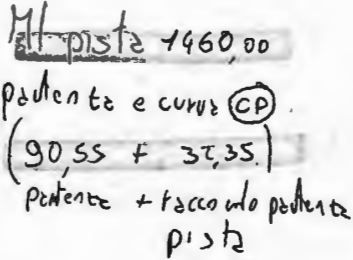 Ml pista 1460,00
partenza e curva CP
(90,55 + 37,35)
Partenza + raccordo partenza
pista